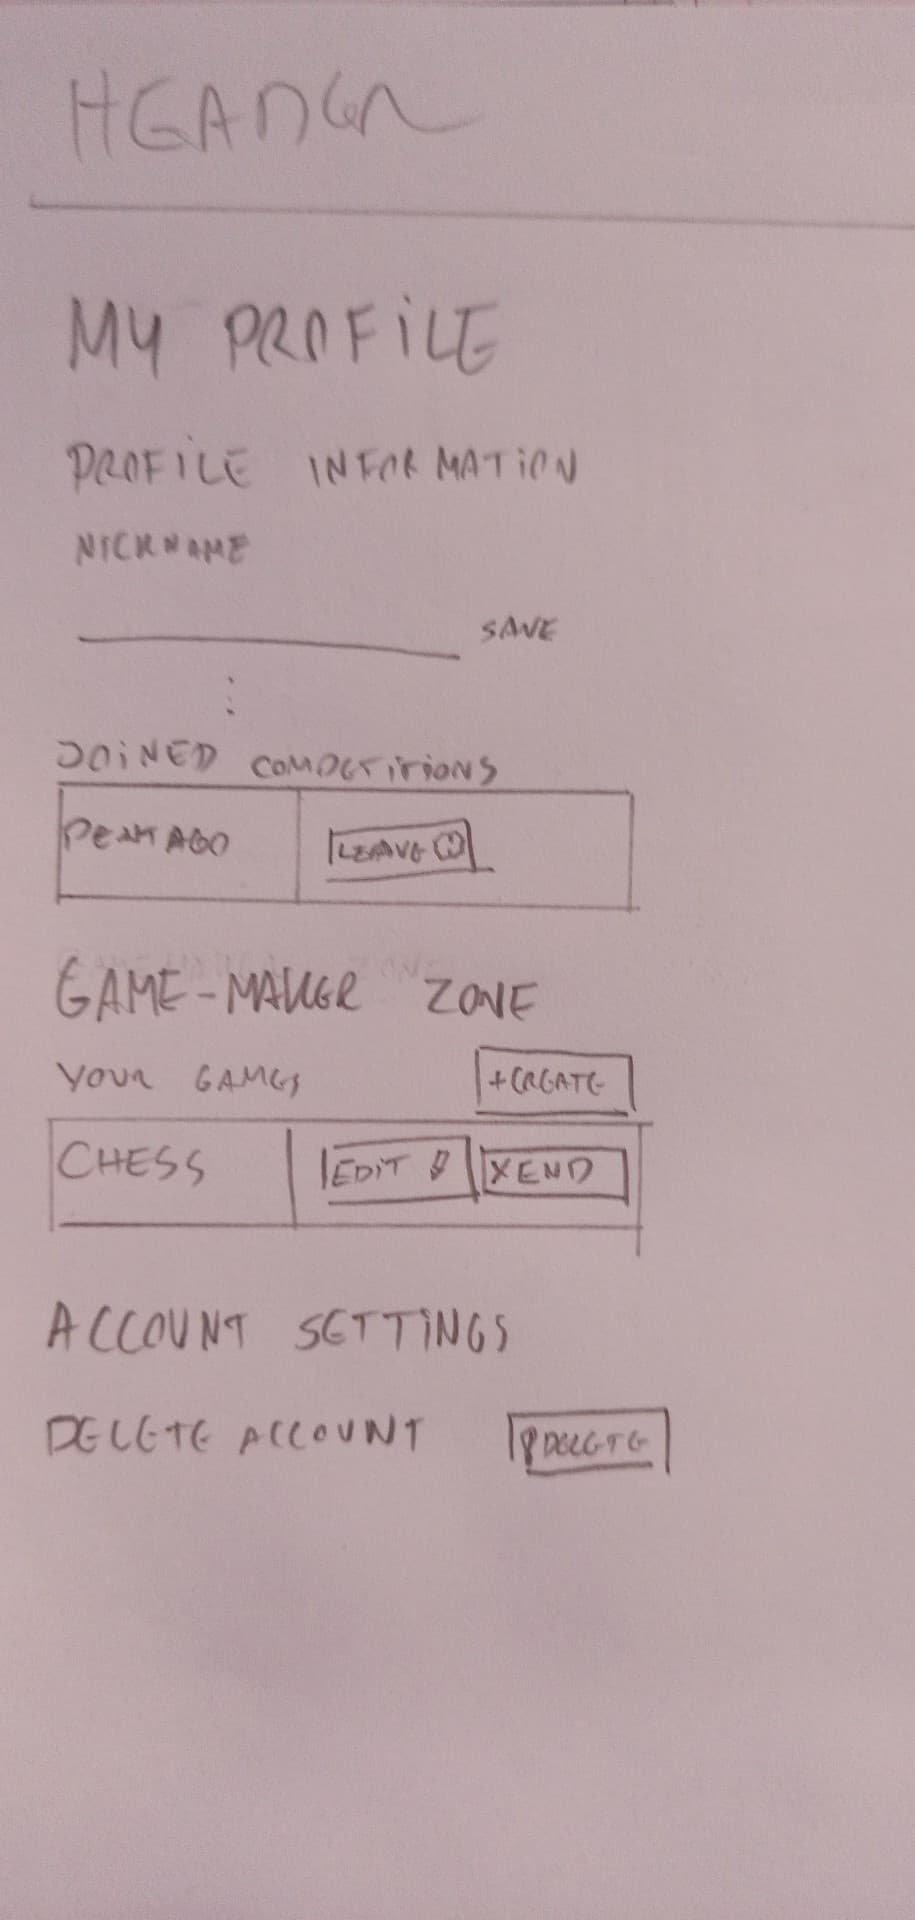 HEADER
MY PROFILE
PROFILE INFORMATION
NICKNAME
SAVE
JOINED COMPETITIONS
PENTAGO
LEAVE
GAME-MAKER ZONE
YOUR GAMES
+CREATE
CHESS
EDIT
X END
ACCOUNT SETTINGS
DELETE ACCOUNT
DELETE